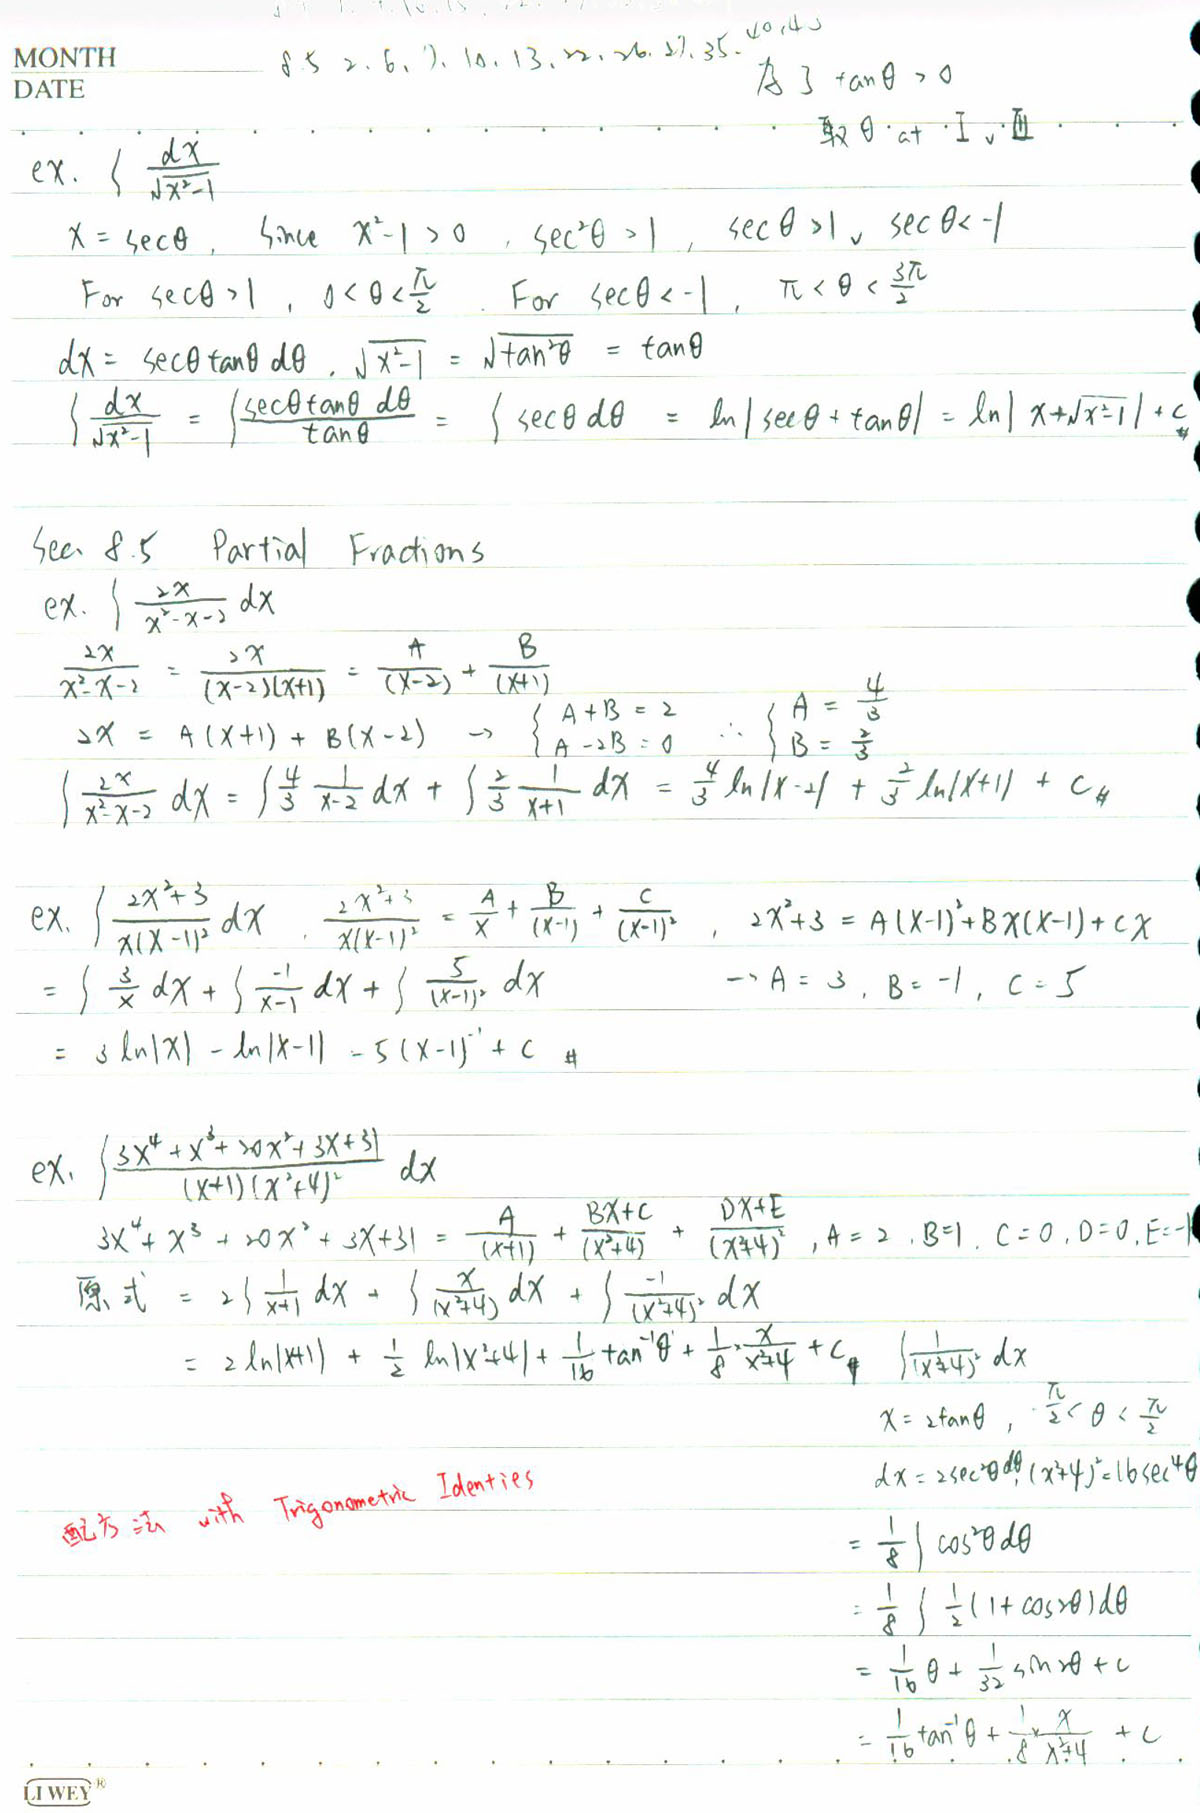 MONTH
DATE
8.5 2. 6. 7. 10. 13. 22. 26. 27. 35. 40. 43
為了 tanθ > 0
取 θ at I ∨ III
ex. ∫ dx/√(x²-1)
x = secθ, Since x²-1 > 0, sec²θ > 1, secθ > 1 ∨ secθ < -1
For secθ > 1, 0 < θ < π/2. For secθ < -1, π < θ < 3π/2
dx = secθ tanθ dθ, √(x²-1) = √(tan²θ) = tanθ
∫ dx/√(x²-1) = ∫ (secθ tanθ dθ)/tanθ = ∫ secθ dθ = ln|secθ + tanθ| = ln|x+√(x²-1)| + C #
Sec. 8.5 Partial Fractions
ex. ∫ 2x/(x²-x-2) dx
2x/(x²-x-2) = 2x/((x-2)(x+1)) = A/(x-2) + B/(x+1)
2x = A(x+1) + B(x-2) → { A+B = 2, A-2B = 0 ∴ { A = 4/3, B = 2/3
∫ 2x/(x²-x-2) dx = ∫ 4/3 1/(x-2) dx + ∫ 2/3 1/(x+1) dx = 4/3 ln|x-2| + 2/3 ln|x+1| + C #
ex. ∫ (2x²+3)/(x(x-1)²) dx, (2x²+3)/(x(x-1)²) = A/x + B/(x-1) + C/(x-1)², 2x²+3 = A(x-1)²+Bx(x-1)+Cx
= ∫ 3/x dx + ∫ -1/(x-1) dx + ∫ 5/(x-1)² dx → A = 3, B = -1, C = 5
= 3 ln|x| - ln|x-1| - 5(x-1)⁻¹ + C #
ex. ∫ (3x⁴+x³+20x²+3x+31)/((x+1)(x²+4)²) dx
3x⁴+x³+20x²+3x+31 = A/(x+1) + (Bx+C)/(x²+4) + (Dx+E)/(x²+4)², A = 2, B=1, C=0, D=0, E=-1
原式 = 2∫ 1/(x+1) dx + ∫ x/(x²+4) dx + ∫ -1/(x²+4)² dx
= 2 ln|x+1| + 1/2 ln|x²+4| + 1/16 tan⁻¹θ + 1/8 × x/(x²+4) + C #
∫ 1/(x²+4)² dx
x = 2tanθ, -π/2 < θ < π/2
dx = 2sec²θ dθ, (x²+4)² = 16sec⁴θ
配方法 with Trigonometric Identies
= 1/8 ∫ cos²θ dθ
= 1/8 ∫ 1/2 (1+cos2θ) dθ
= 1/16 θ + 1/32 sin2θ + C
= 1/16 tan⁻¹θ + 1/8 × x/(x²+4) + C
LI WEY ®